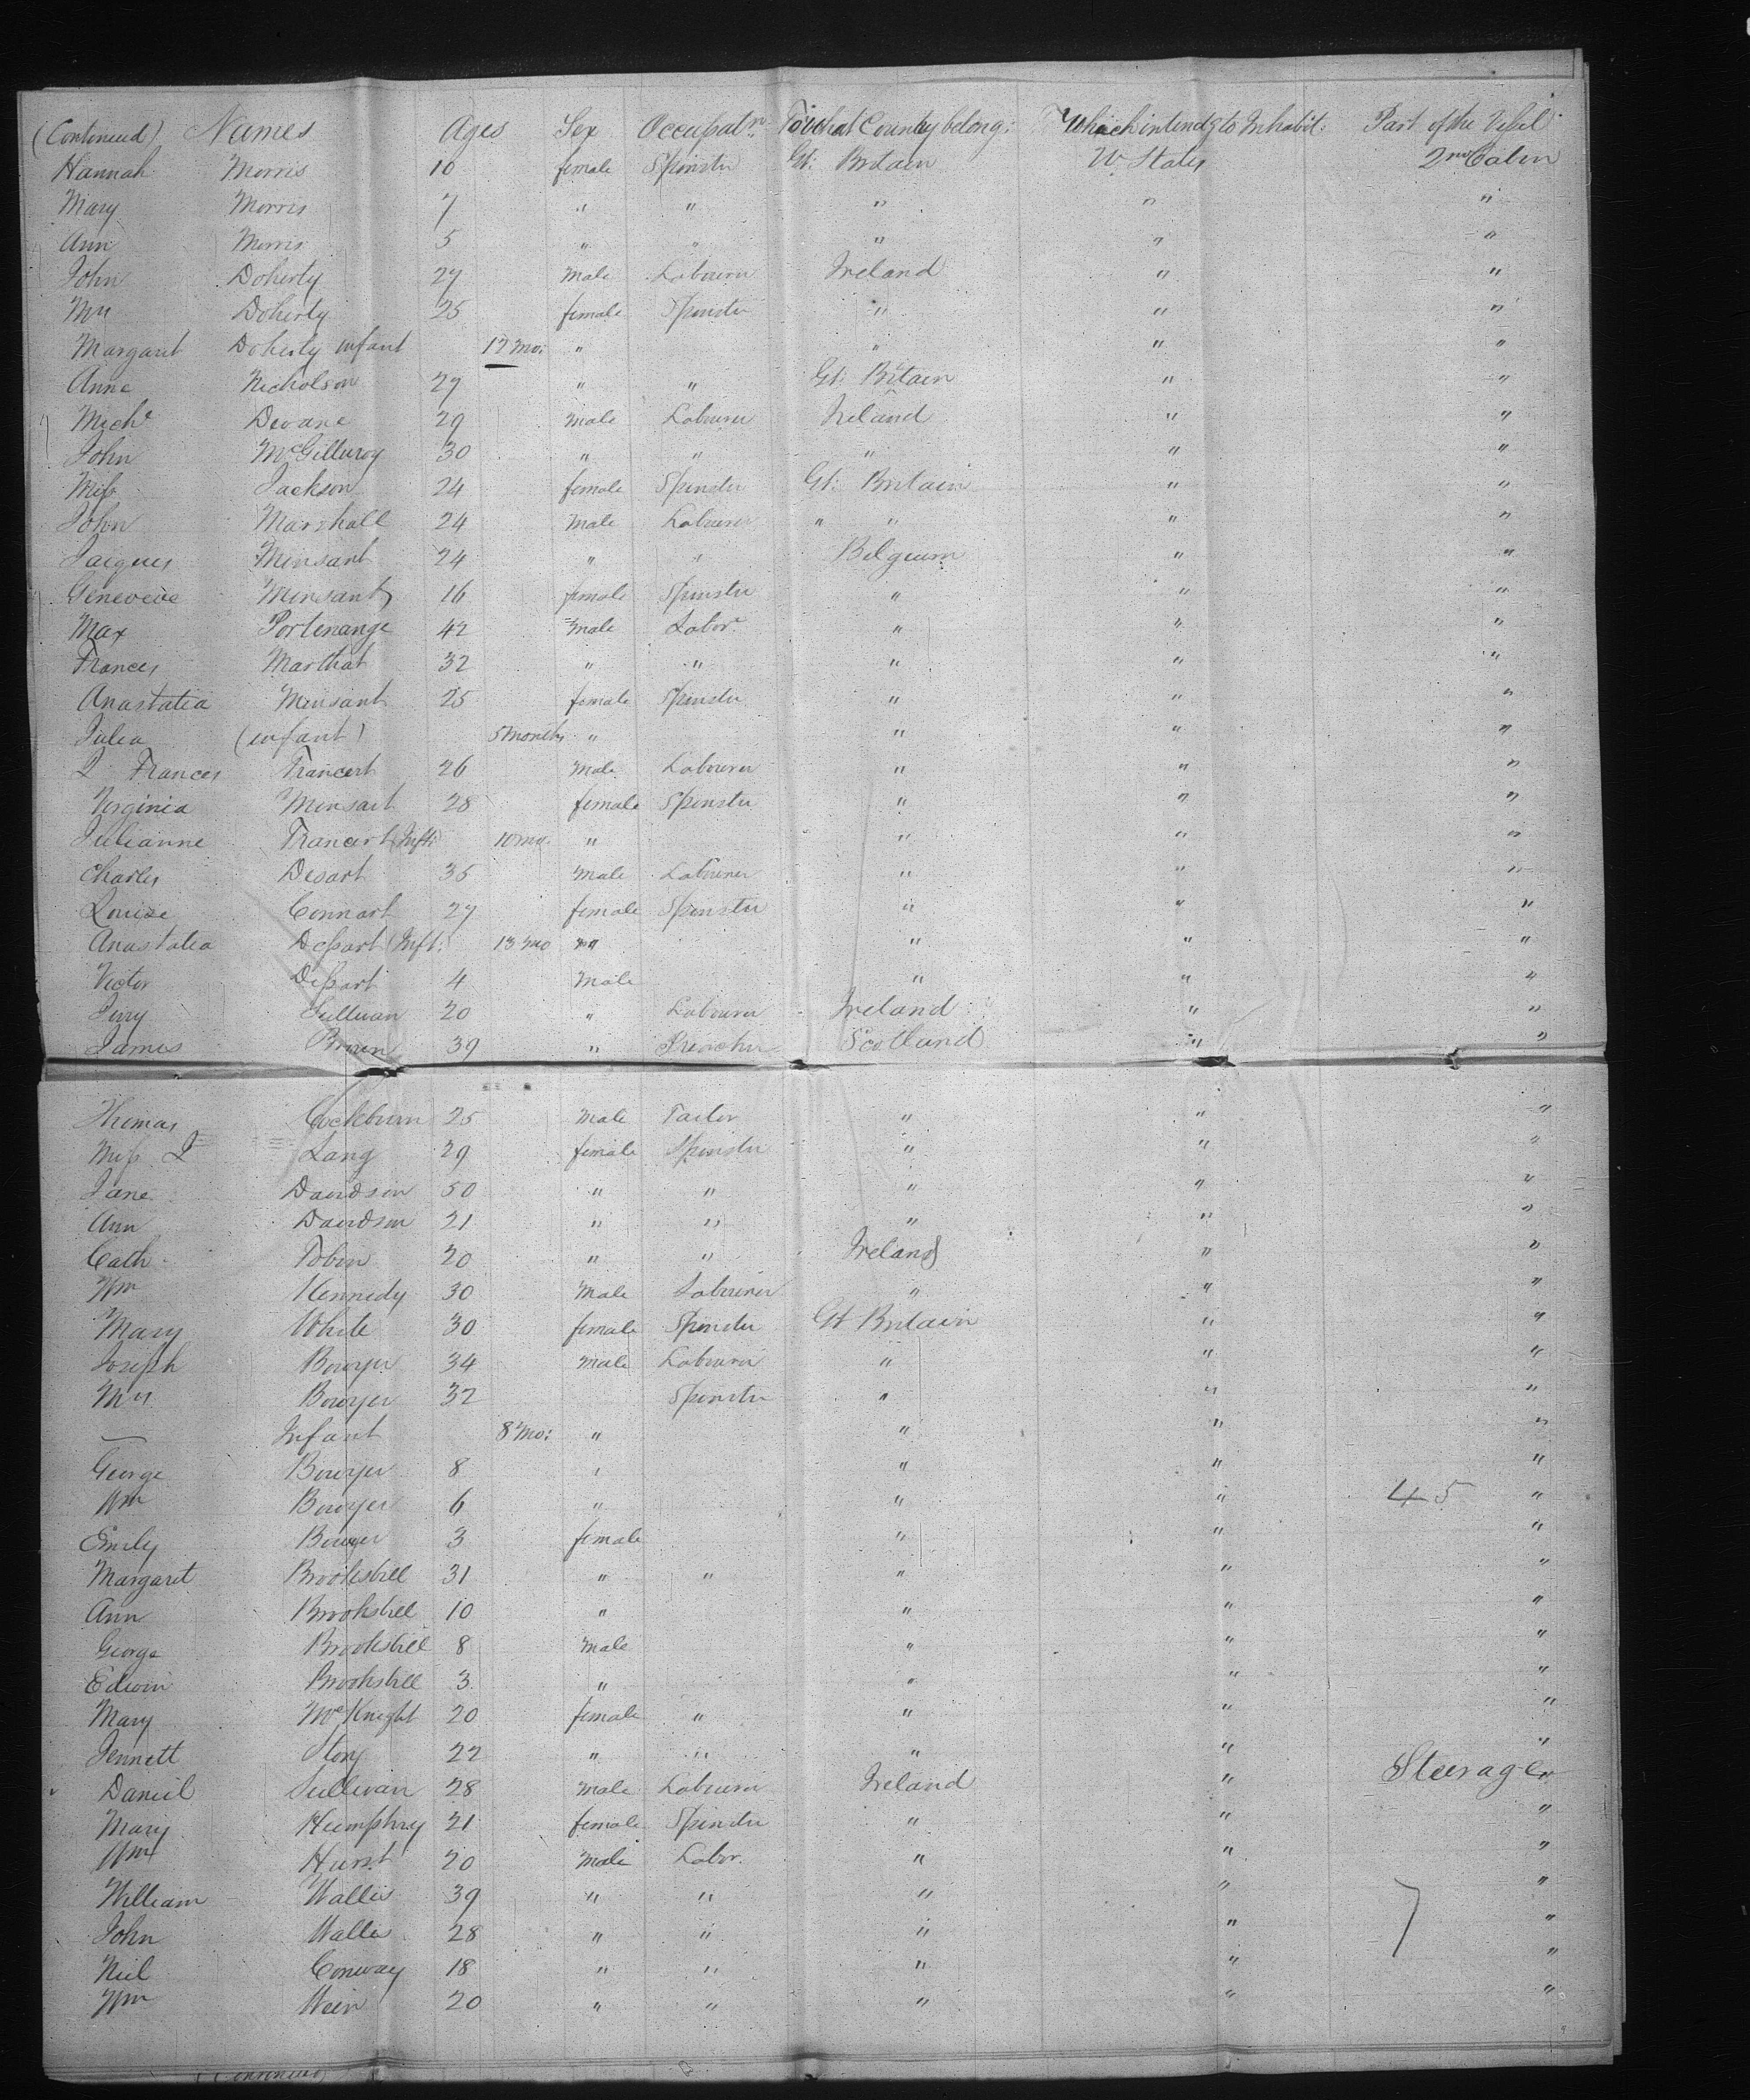 (Continued) Names Ages Sex Occupatn. To what Country belong: Which intends to Inhabit: Part of the Vessel
Hannah Morris 10 female Spinster Gt: Britain U. States 2nd Cabin
Mary Morris 7 " " " " "
Ann Morris 5 " " " " "
John Doherty 27 Male Labourer Ireland " "
Mrs Doherty 25 female Spinster " " "
Margaret Doherty infant 12 mo: " " " "
Anne Nicholson 27 " " Gt: Britain " "
Michl Devane 29 Male Labourer Ireland " "
John McGilluray 30 " " " " "
Miss Jackson 24 female Spinster Gt: Britain " "
John Marshall 24 Male Labourer " " " "
Jacques Minsart 24 " " Belgium " "
Genevieve Minsart 16 female Spinster " " "
Max Portenange 42 Male Labor. " " "
Frances Marthat 32 " " " " "
Anastatia Minsart 25 female Spinster " " "
Julia (infant) 5 Months " " " "
L Frances Francart 26 Male Labourer " " "
Virginia Minsart 28 female Spinster " " "
Julianne Francart (Inft: 10 mo. " " " "
Charles Desart 35 Male Labourer " " "
Louise Connart 27 female Spinster " " "
Anastatia Dessart (Inft: 13 mo " " " "
Victor Dessart 4 Male " " "
Jerry Sullivan 20 " Labourer Ireland " "
James Brown 39 " Preacher Scotland " "
Thomas Cockburn 25 Male Tailor " " "
Miss L Lang 29 female Spinster " " "
Jane Davidson 50 " " " " "
Ann Davidson 21 " " " " "
Cath Tobin 20 " " Ireland " "
Wm Kennedy 30 Male Labourer " " "
Mary White 30 female Spinster Gt Britain " "
Joseph Bowyer 34 Male Labourer " " "
Mrs Bowyer 32 Spinster " " "
— Infant 8 Mo: " " " "
George Bowyer 8 " " " "
Wm Bowyer 6 " " " 45 "
Emily Bowyer 3 female " " "
Margaret Brooksbill 31 " " " " "
Ann Brooksbill 10 " " " "
George Brooksbill 8 Male " " "
Edwin Brooksbill 3 " " " "
Mary McKnight 20 female " " " "
Jennett Story 22 " " " " "
Daniel Sullivan 28 Male Labourer Ireland " Steerage "
Mary Humphry 21 female Spinster " " "
Wm Hurst 20 Male Labor. " " "
William Wallis 39 " " " " "
John Wallis 28 " " " " 7 "
Niel Conway 18 " " " " "
Wm Wein 20 " " " " "
(Continued)